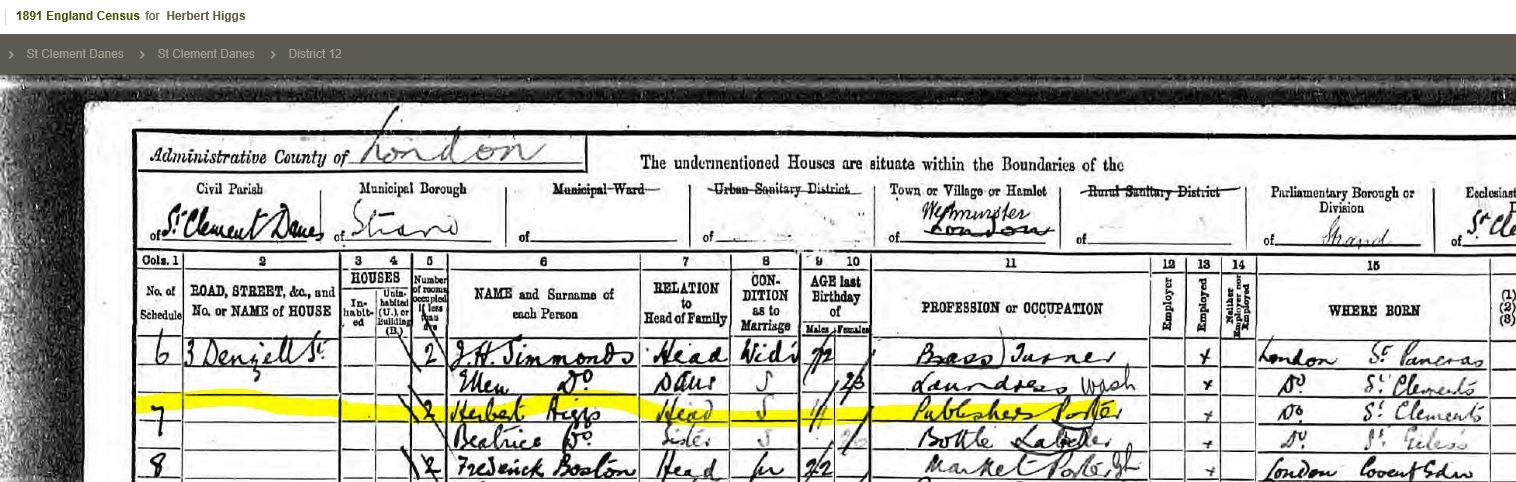 1891 England Census for Herbert Higgs
St Clement Danes > St Clement Danes > District 12
Administrative County of London
The undermentioned Houses are situate within the Boundaries of the
Civil Parish Municipal Borough Municipal Ward Urban Sanitary District Town or Village or Hamlet Rural Sanitary District Parliamentary Borough or Division
of St Clement Danes of Strand of of of Westminster London of of Strand of
Cols. 1 2 3 4 5 6 7 8 9 10 11 12 13 14 15
No. of Schedule ROAD, STREET, &c., and No. or NAME of HOUSE HOUSES Inhabited Uninhabited (U.), or Building (B.) Number of rooms occupied if less than five NAME and Surname of each Person RELATION to Head of Family CONDITION as to Marriage AGE last Birthday of Males Females PROFESSION or OCCUPATION Employer Employed Neither Employer nor Employed WHERE BORN (1) (2) (3)
6 3 Denzell St 2 J.H. Simmonds Head Widr Brass Turner x London St Pancras
Do Daur S Laundress Wash x Do St Clements
7 2 Herbert Higgs Head S Publishers Porter x Do St Clements
Beatrice Do Sister S Bottle Labeller x Do St Giles's
8 2 Frederick Boston Head 22 Market x London Covent Gdn